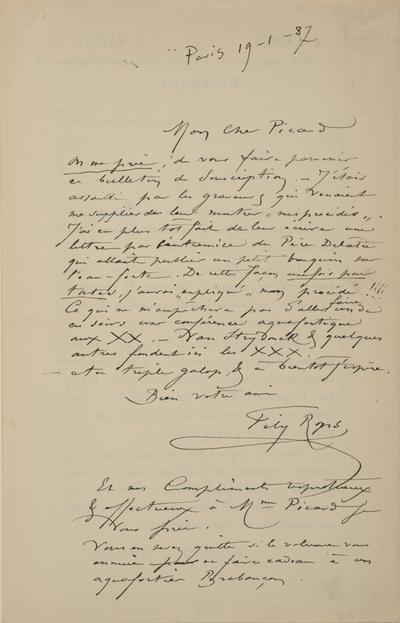 Paris 19-1-87
Mon Cher Picard
on me prie, de vous faire parvenir
ce bulletin de Souscription. – J'étais
assailli par les graveurs qui venaient
me supplier de leur montrer „mes procédés„.
J'ai eu plus tot fait de leur écrire une
lettre par l'entremise du Père Delatre
qui allait publier un petit bouquin sur
l'eau-forte. De cette façon une fois pour
toutes, j'aurai „expliqué„ mon procédé !!!!
Ce qui ne m'empechera pas d'aller faire
ces soirs une conférence aquafortique
aux XX. – Van Strydonck & quelques
autres fondent ici les XXX.
– Au triple galop, & à bientot j'espère.
Bien votre ami
Fély Rops
Et mes Compliments respectueux
& affectueux à Mme Picard je
vous prie.
Vous en serez quitte si le volume vous
ennuie pour en faire cadeau à un
aquafortier Brabançon.